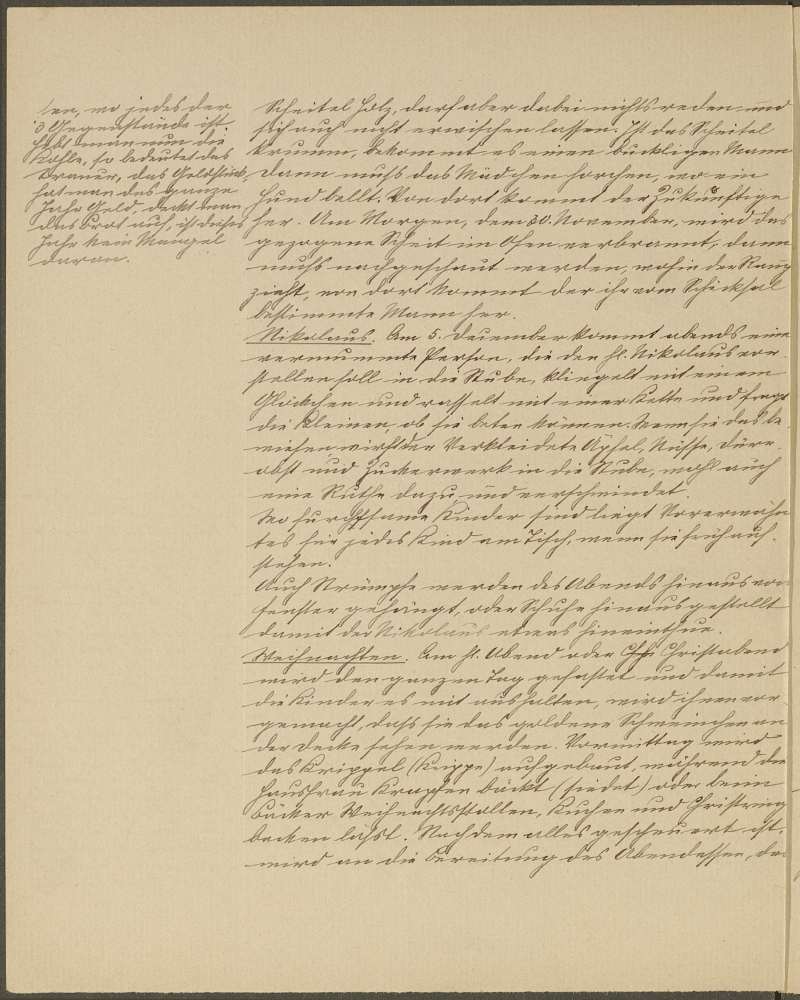 ten, wo jedes der
3 Gegenstände ist.
Hebt man nun die
Kohle, so bedeutet das
Trauer, das Geldstück,
hat man das ganze
Jahr Geld, deckt man
das Brot auf, ist dieses
Jahr kein Mangel
daran.
Scheitel Holz, darf aber dabei nichts reden und
sich auch nicht erwischen lassen. Ist das Scheitel
krumm, bekommt es einen buckligen Mann
Dann muss das Mädchen horchen, wo ein
Hund bellt. Von dort kommt der Zukünftige
her. Am Morgen, dem 30. November, wird das
gezogene Scheit im Ofen verbrannt, dann
muss nachgeschaut werden, wohin der Rauch
zieht, von dort kommt der ihr vom Schicksal
bestimmte Mann her.
Nikolaus. Am 5. Dezember kommt abends eine
vermummte Person, die den hl. Nikolaus vor-
stellen soll in die Stube, klingelt mit einem
Glöckchen und rasselt mit einer Kette und fragt
die Kleinen, ob sie beten können. Wenn sie das be-
wiesen, wirft der Verkleidete Äpfel, Nüsse, Dürr-
obst und Zuckerwerk in die Stube, wohl auch
eine Ruthe dazu und verschwindet.
Wo furchtsame Kinder sind liegt Vorerwähn-
tes für jedes Kind am Tisch, wenn sie früh auf-
stehen.
Auch Strümpfe werden des Abends hinaus vor
Fenster gehängt, oder Schuhe hinausgestellt
damit der Nikolaus etwas hineinthue.
Weihnachten. Am hl. Abend oder Christabend
wird den ganzen Tag gefastet und damit
die Kinder es mit aushalten, wird ihnen vor-
gemacht, dass sie das goldene Schweinchen an
der Decke sehen werden. Vormittag wird
das Krippel (Krippe) aufgebaut, während die
Hausfrau Krapfen bäckt (siedet) oder beim
Bäcker Weihnachtsstollen, Kuchen und Christring
backen lässt. Nachdem alles gescheuert ist,
wird an die Bereitung des Abendessen, das